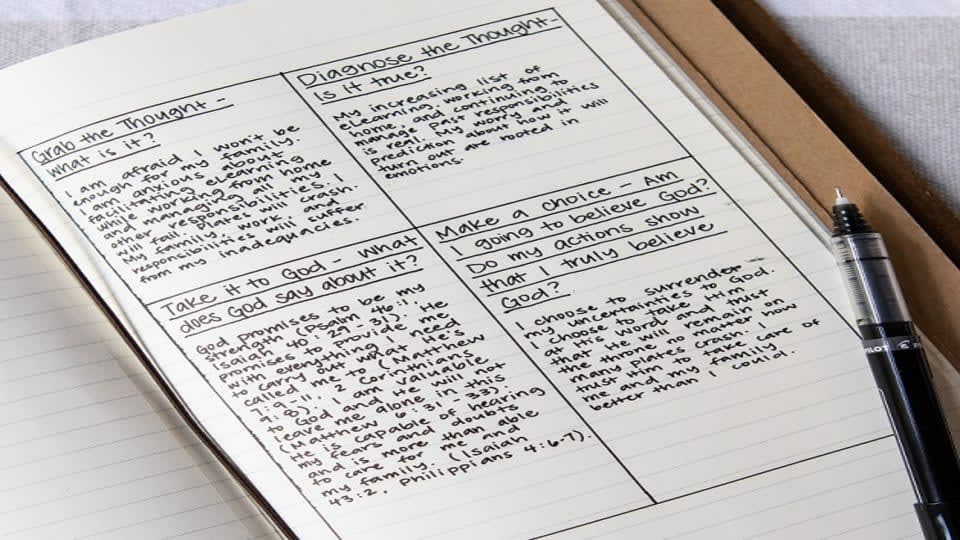 Grab the Thought -
what is it?
I am afraid I won't be
enough for my family.
I am anxious about
facilitating eLearning
while working from home
and managing all my
other responsibilities. I
will fail. Plates will crash.
My family, work, and
responsibilities will suffer
from my inadequacies.
Diagnose the Thought -
Is it true?
My increasing list of
eLearning, working from
home, and continuing to
manage past responsibilities
is real. My worry and
prediction about how it will
turn out are rooted in
emotions.
Take it to God - what
does God say about it?
God promises to be my
strength (Psalm 46:1,
Isaiah 40:29-31). He
promises to provide me
with everything I need
to carry out what He's
called me to (Matthew
7:9-11, 2 Corinthians
9:8). I am valuable
to God and He will not
leave me alone in this
(Matthew 6:31-33).
He is capable of hearing
my fears and doubts
and is more than able
to care for me and
my family. (Isaiah
43:2, Philippians 4:6-7).
Make a choice - Am
I going to believe God?
Do my actions show
that I truly believe
God?
I choose to surrender
my uncertainties to God.
I choose to take Him
at His word and trust
that He will remain on
the throne no matter how
many plates crash. I
trust Him to take care of
me and my family
better than I could.
PILOT